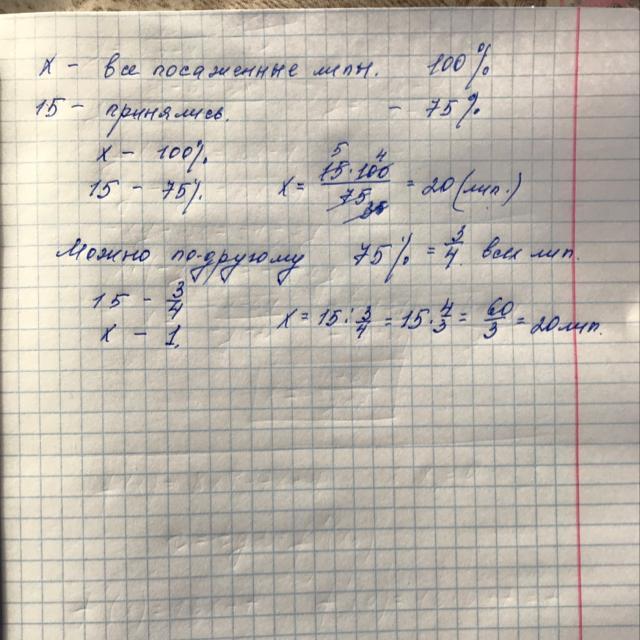 x - все посаженные липы. 100%
15 - принялись. - 75%
x - 100%
15 - 75%. x = 15·100/75 = 20 (лип.)
Можно по-другому 75% = 3/4 всех лип.
15 - 3/4
x - 1. x = 15 : 3/4 = 15 · 4/3 = 60/3 = 20 лип.